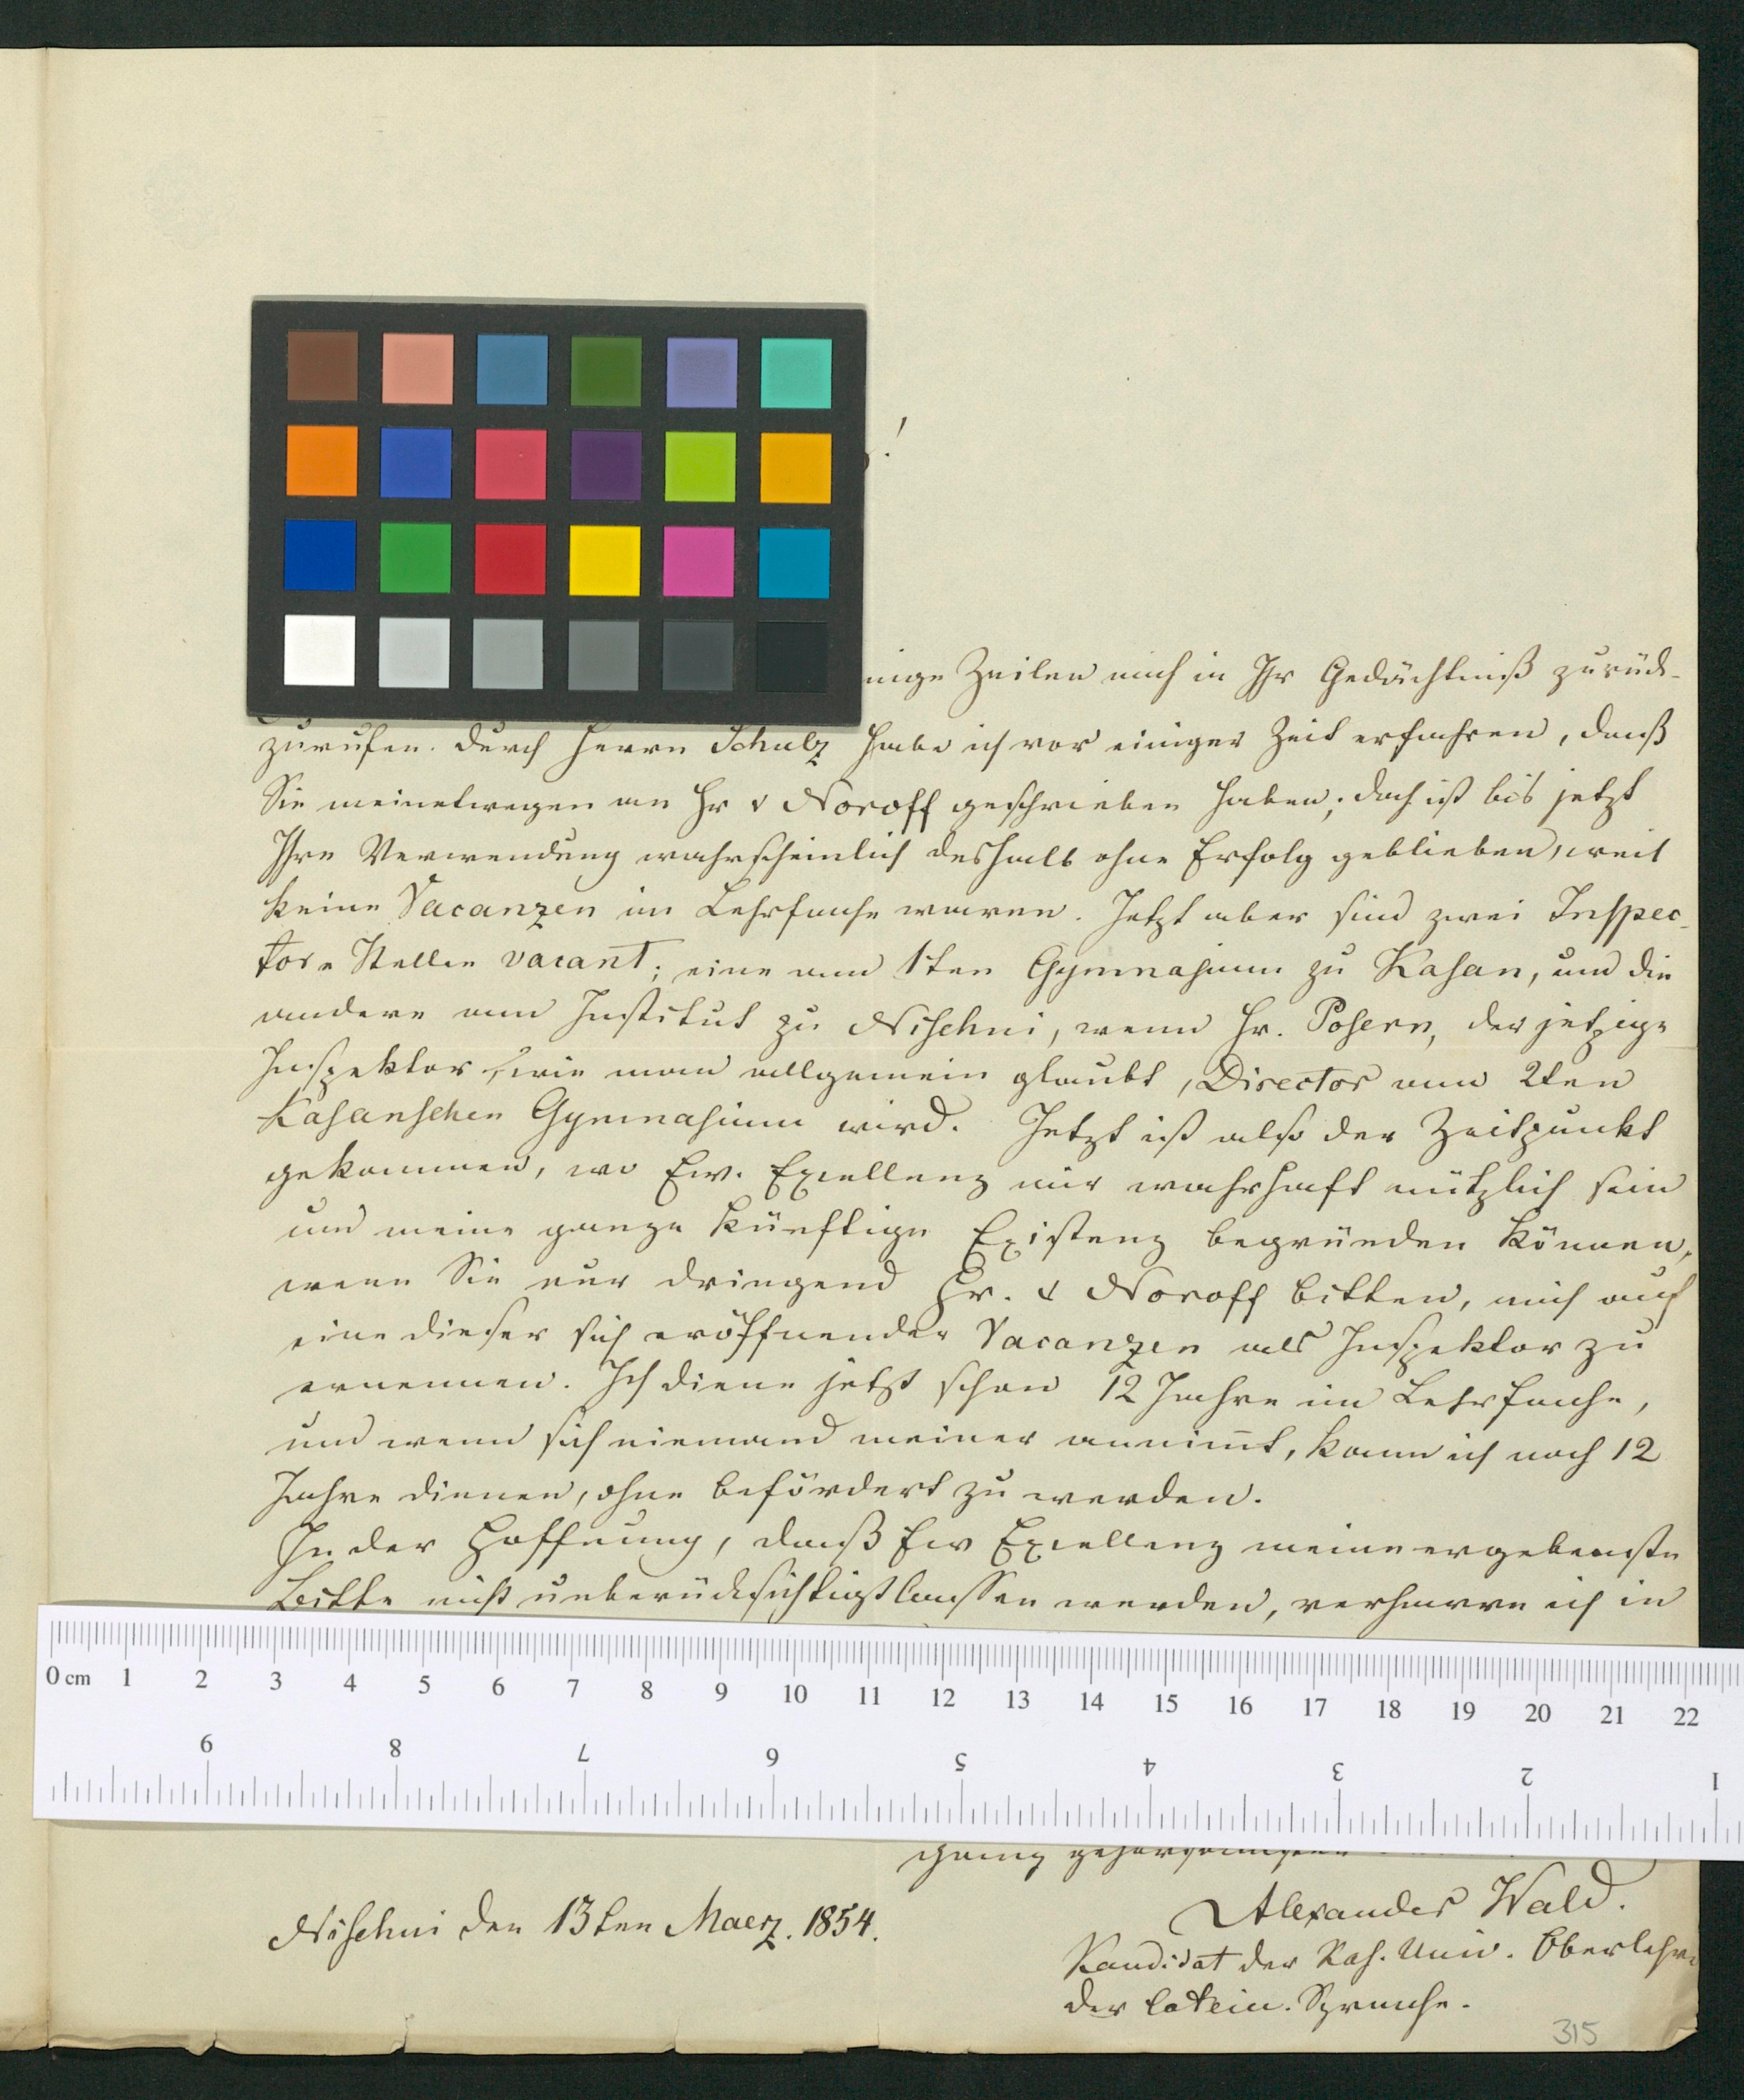 !
nige Zeilen mich in Ihr Gedächtniß zurück-
zurufen. Durch Herrn Schulz habe ich vor einiger Zeit erfahren, daß
Sie meinetwegen an Hr v Noroff geschrieben haben; doch ist bis jetzt
Ihre Verwendung wahrscheinlich deshalb ohne Erfolg geblieben, weil
keine Vacanzen im Lehrfache waren. Jetzt aber sind zwei Inspec-
tore Stellen vacant; eine am 1ten Gymnasium zu Kasan, und die
andere am Institut zu Nischni, wenn Hr. Posern, der jetzige
Inspektor, wie man allgemein glaubt, Director am 2ten
Kasanschen Gymnasium wird. Jetzt ist also der Zeitpunkt
gekommen, wo Ew. Excellenz mir wahrhaft nützlich sein
und meine ganze künftige Existenz begründen können,
wenn Sie nur dringend Hr. v Noroff bitten, mich auf
eine dieser sich eröffnender Vacanzen als Inspektor zu
ernennen. Ich diene jetzt schon 12 Jahre im Lehrfache,
und wenn sich niemand meiner annim̅t, kann ich noch 12
Jahre dienen, ohne befördert zu werden.
In der Hoffnung, daß Ew Excellenz meine ergebenste
Bitte nicht unberücksichtigt lassen werden, verharre ich in
0 cm 1 2 3 4 5 6 7 8 9 10 11 12 13 14 15 16 17 18 19 20 21 22
9 8 7 6 5 4 3 2 1
ganz gehorsamster
Alexander Wald.
Nischni den 13ten Maerz. 1854.
Kandidat der Kas. Univ. Oberlehre
der latein. Sprache.
315